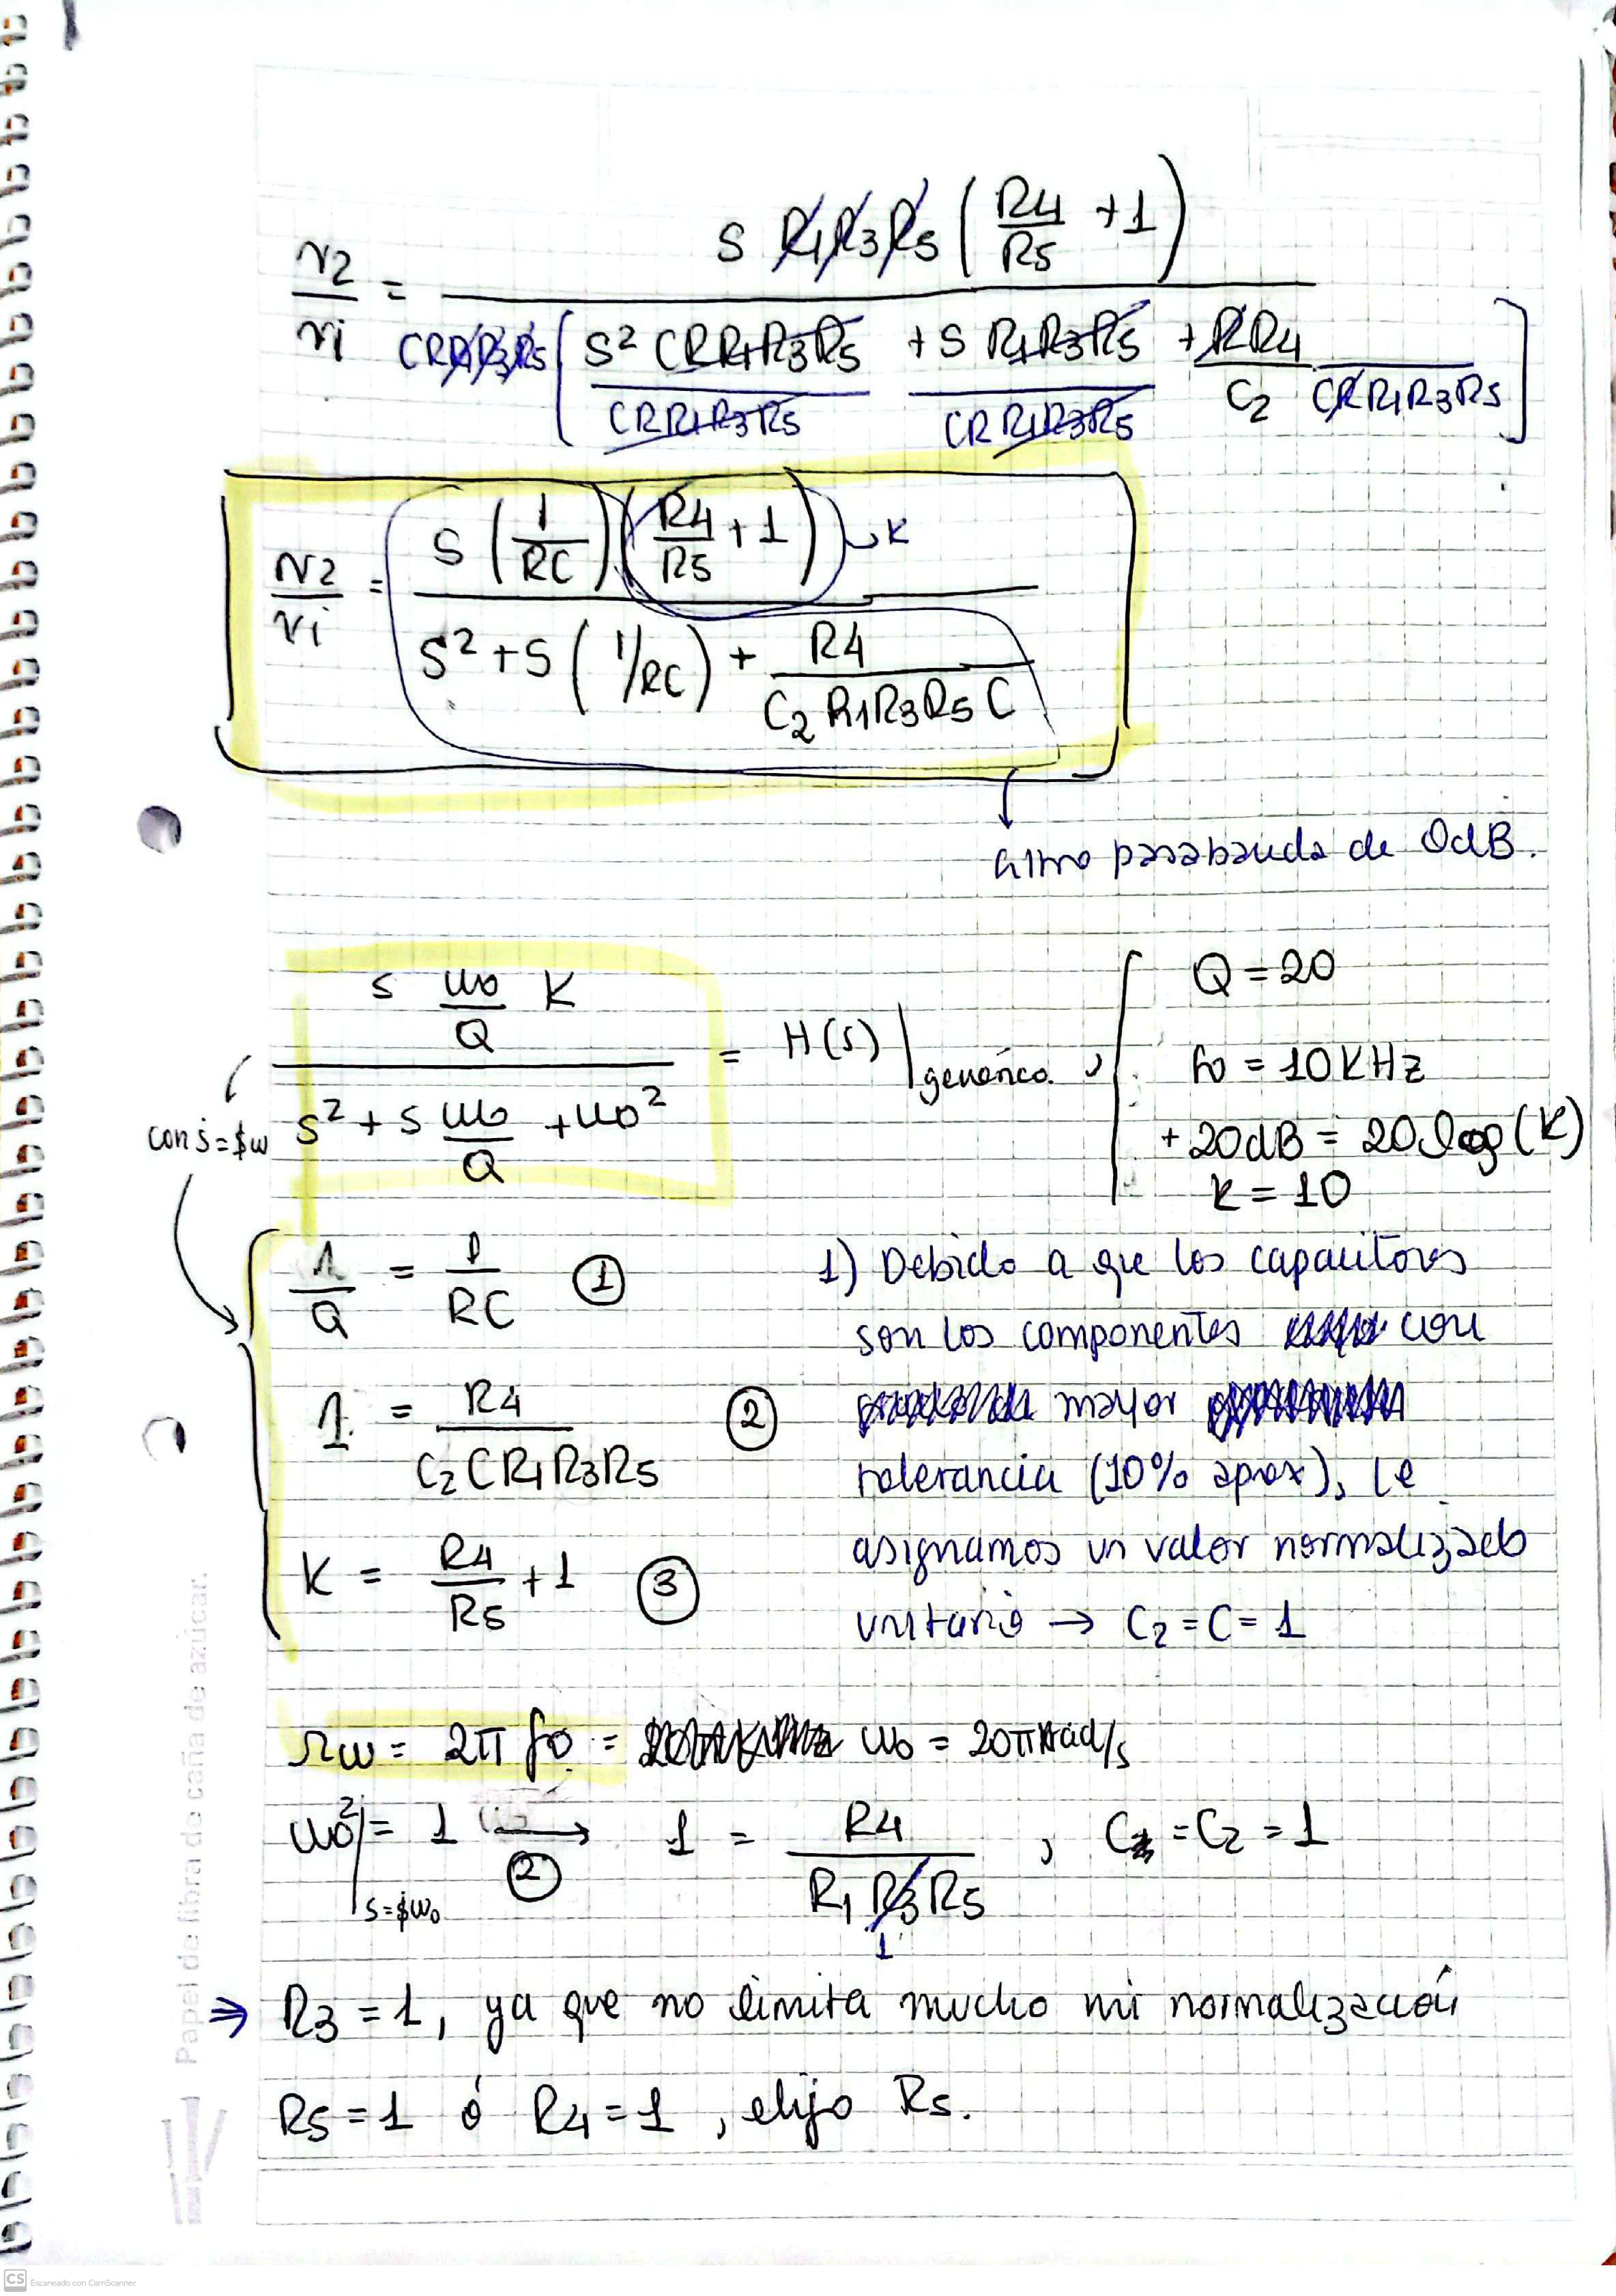 v2/vi = s R1R3R5 (R4/R5 + 1) / CRR1R3R5 [ s² CRR1R3R5 / CRR1R3R5 + s R1R3R5 / CRR1R3R5 + RR4 / C2 CRR1R3R5 ]
v2/vi = s (1/RC) (R4/R5 + 1) / s² + s (1/RC) + R4 / C2 R1R3R5 C
K
filtro pasabanda de 0dB.
s ωo/Q K / s² + s ωo/Q + ωo² = H(s)| genérico ,
Q = 20
fo = 10KHz
+20dB = 20 log(K)
K = 10
con s = $ω
1/Q = 1/RC ①
1 = R4 / C2 C R1 R3 R5 ②
K = R4/R5 + 1 ③
1) Debido a que los capacitores
son los componentes con
mayor
tolerancia (10% aprox), le
asignamos un valor normalizado
unitario → C2 = C = 1
Ωω = 2π fo = ωo = 20π krad/s
ωo²| s=$ωo = 1 → ② 1 = R4 / R1 R3 R5 , C = C2 = 1
1
⇒ R3 = 1, ya que no limita mucho mi normalización
R5 = 1 ó R4 = 1 , elijo R5.
Papel de fibra de caña de azúcar.
CS Escaneado con CamScanner